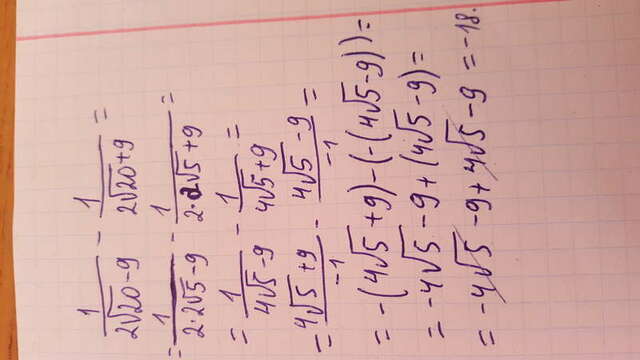 1/(2√20-9) - 1/(2√20+9) =
= 1/(2·2√5-9) - 1/(2·2√5+9) =
= 1/(4√5-9) - 1/(4√5+9) =
= (4√5+9)/-1 - (4√5-9)/-1 =
= -(4√5+9)-(-(4√5-9))=
= -4√5-9+(4√5-9)=
= -4√5-9+4√5-9 = -18.